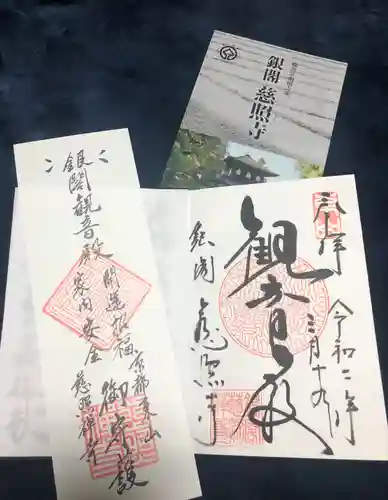 銀閣 慈照寺
銀閣観音殿
開運招福
家内安全
京都東山
慈照禅寺
御守護
奉拝
令和二年
三月十九日
観音殿
銀閣
慈照寺